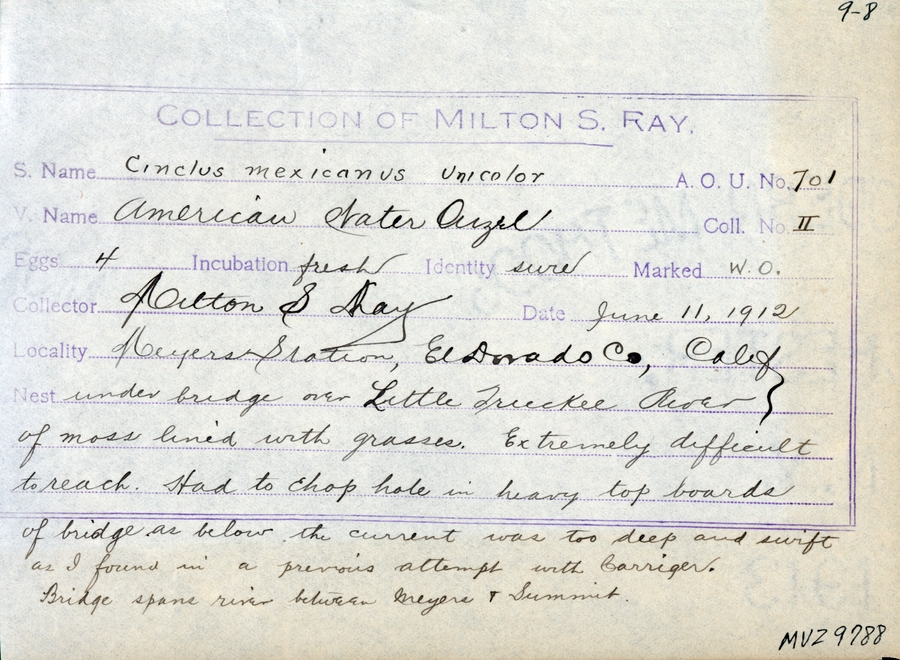 9-8
COLLECTION OF MILTON S. RAY.
S. Name Cinclus mexicanus unicolor A. O. U. No. 701
V. Name American Water Ouzel Coll. No. II
Eggs 4 Incubation fresh Identity sure Marked W.O.
Collector Milton S Ray Date June 11, 1912
Locality Meyers Station, El Dorado Co, Calif
Nest under bridge over Little Truckee River }
of moss lined with grasses. Extremely difficult
to reach. Had to chop hole in heavy top boards
of bridge as below the current was too deep and swift
as I found in a previous attempt with Carriger.
Bridge spans river between Meyers & Summit.
MVZ 9788